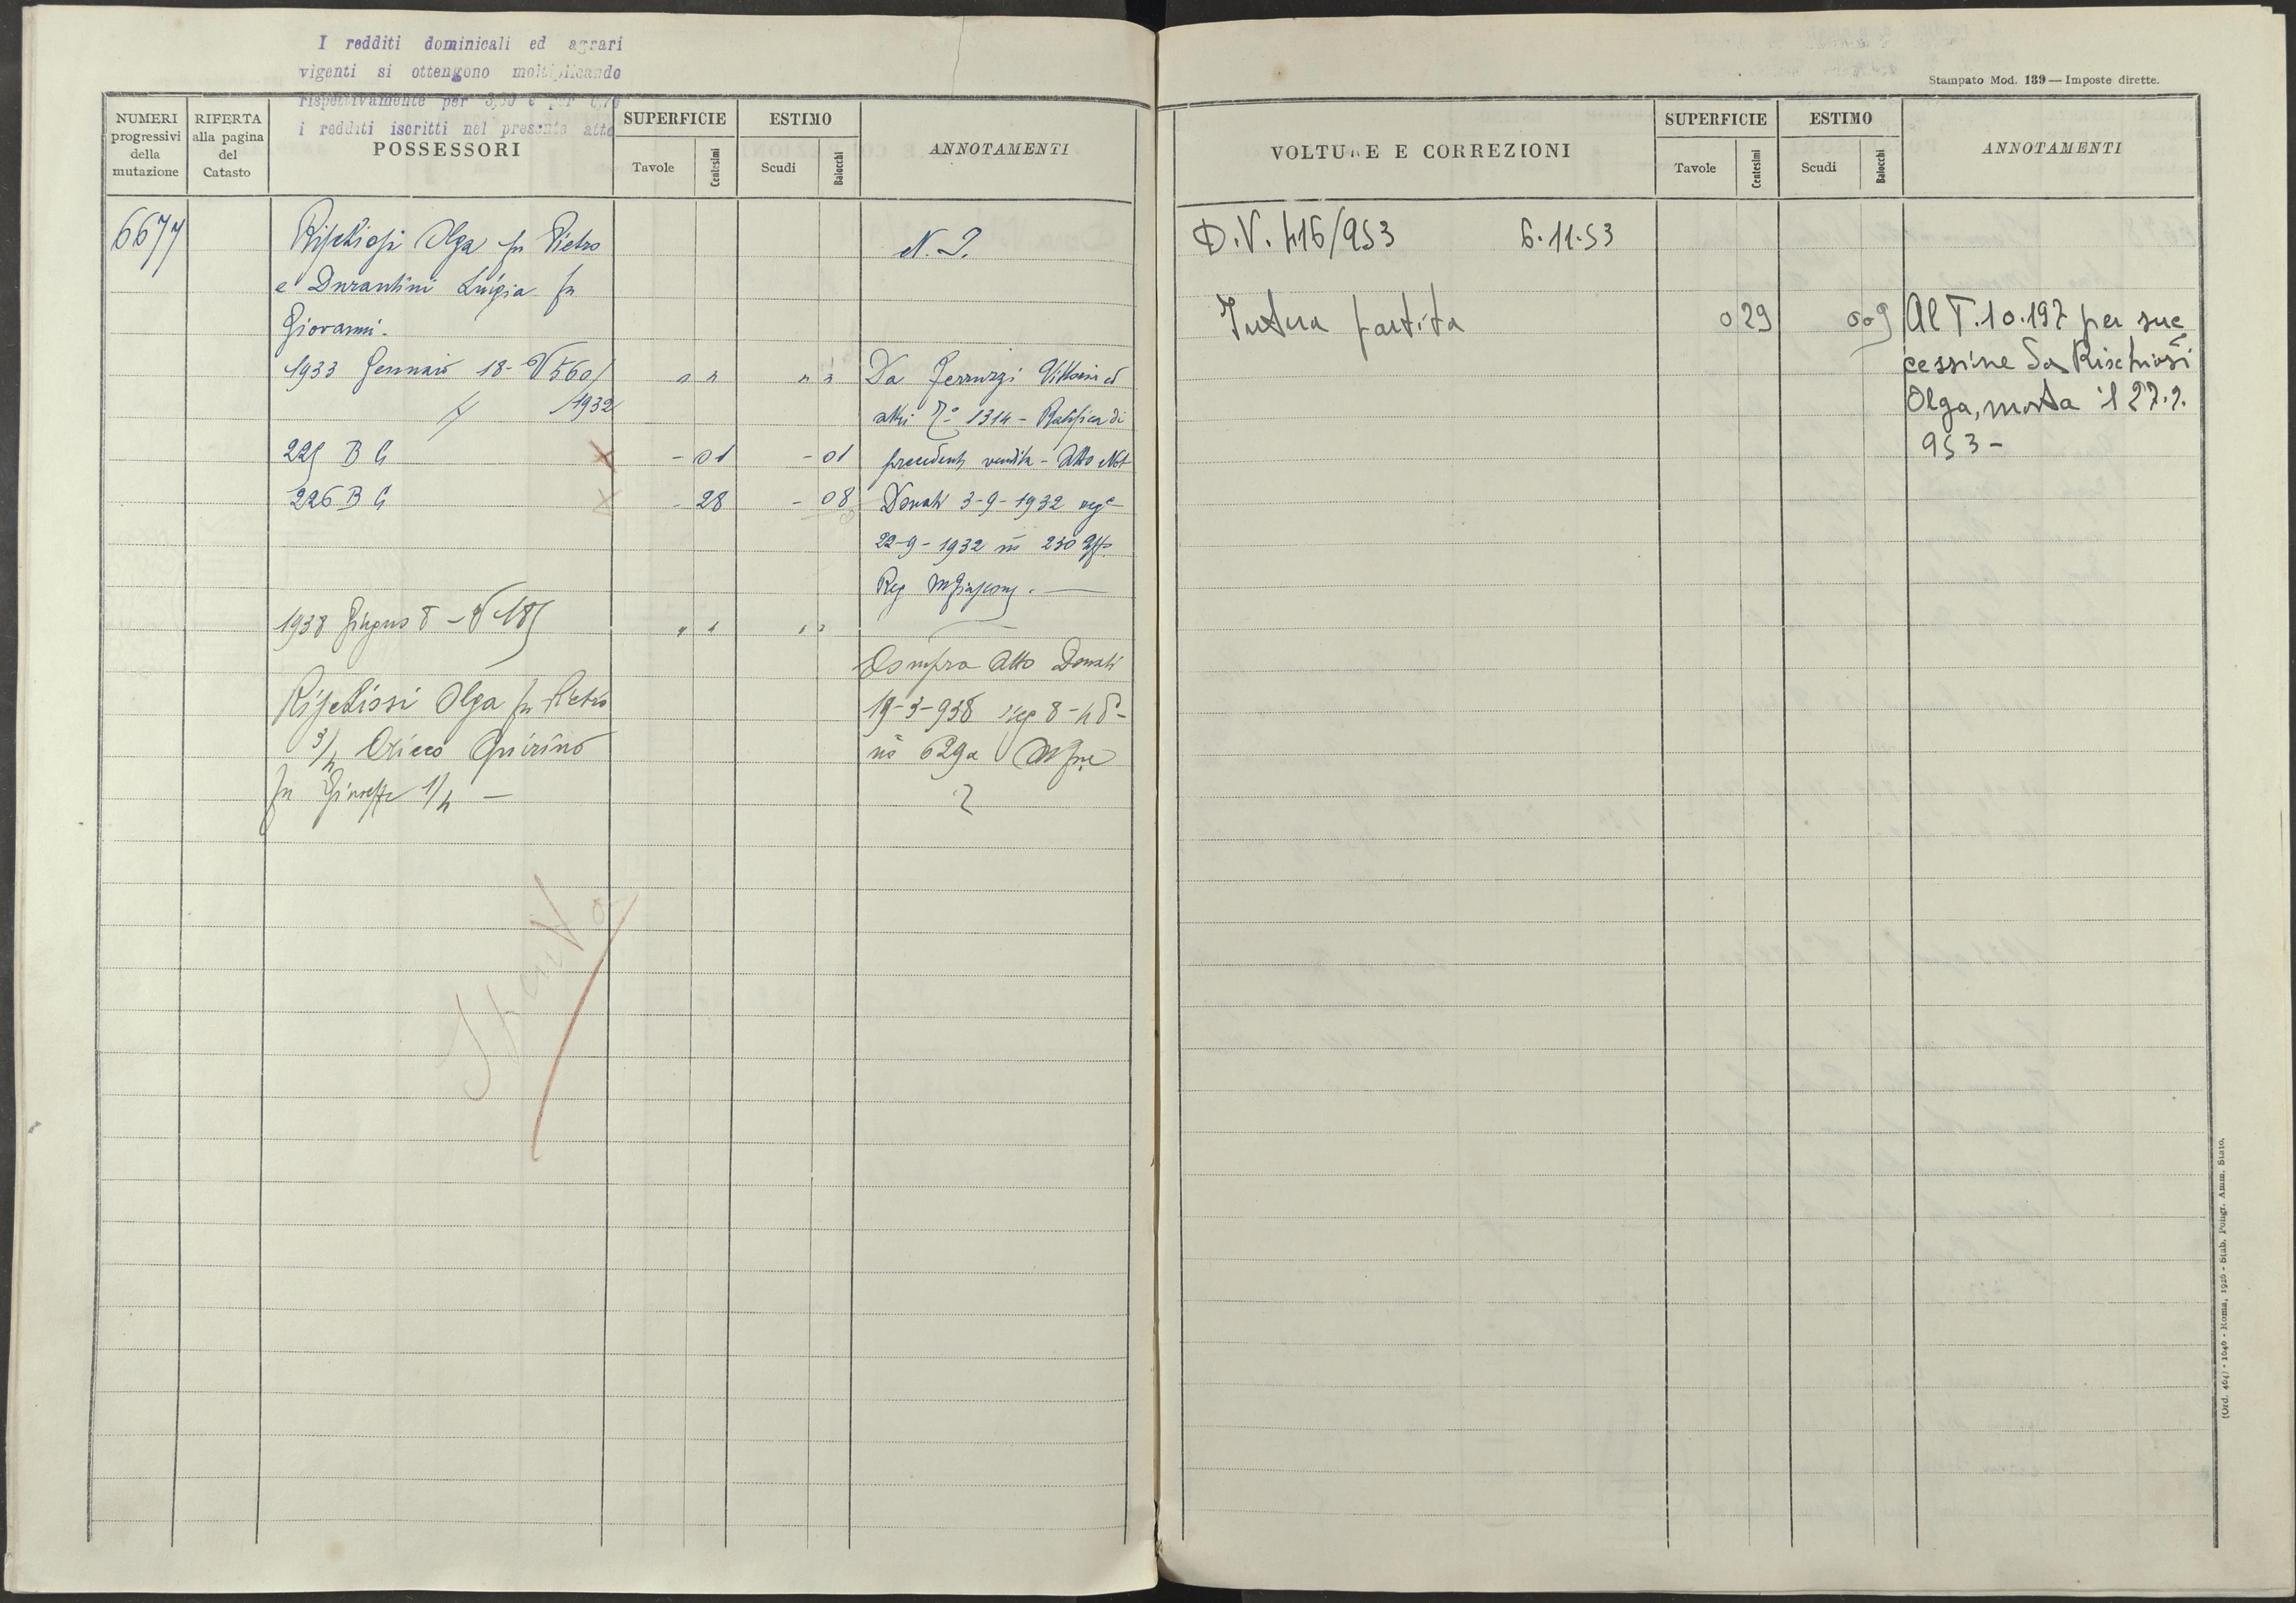 I redditi dominicali ed agrari
vigenti si ottengono moltiplicando
rispettivamente per
i redditi iscritti nel presente atto
NUMERI progressivi della mutazione
RIFERTA alla pagina del Catasto
POSSESSORI
SUPERFICIE
Tavole
Centesimi
ESTIMO
Scudi
Baiocchi
ANNOTAMENTI
6677
Olga fu Pietro
N. 2.
e Durantini Luigia fu
Giovanni.
1933 Gennaio 18 - V 560/
1932
" "
" "
Da Ferruzzi Vittorio ed
altri 1314 - Ratifica di
225 B G
- 01
- 01
precedente vendita - Atto Not
226 B G
- 28
- 08
Donati 3-9-1932 reg
22-9-1932 n° 230
Reg
1938 Giugno 8 - V 185
" "
" "
Compra Atto Donati
Olga fu Pietro
19-3-938 reg 8-4
3/4 Quirino
n° 629
fu Giuseppe 1/4 -
Stampato Mod. 139 — Imposte dirette.
VOLTURE E CORREZIONI
SUPERFICIE
Tavole
Centesimi
ESTIMO
Scudi
Baiocchi
ANNOTAMENTI
D.V. 416/953 6.11.53
Intera partita
0 29
0 09
Al T.10.197 per suc
cessione da Rischiosi
Olga, morta il 27.2.
953 -
(Ord. 464) - 1046 - Roma, 1926 - Stab. Poligr. Amm. Stato.